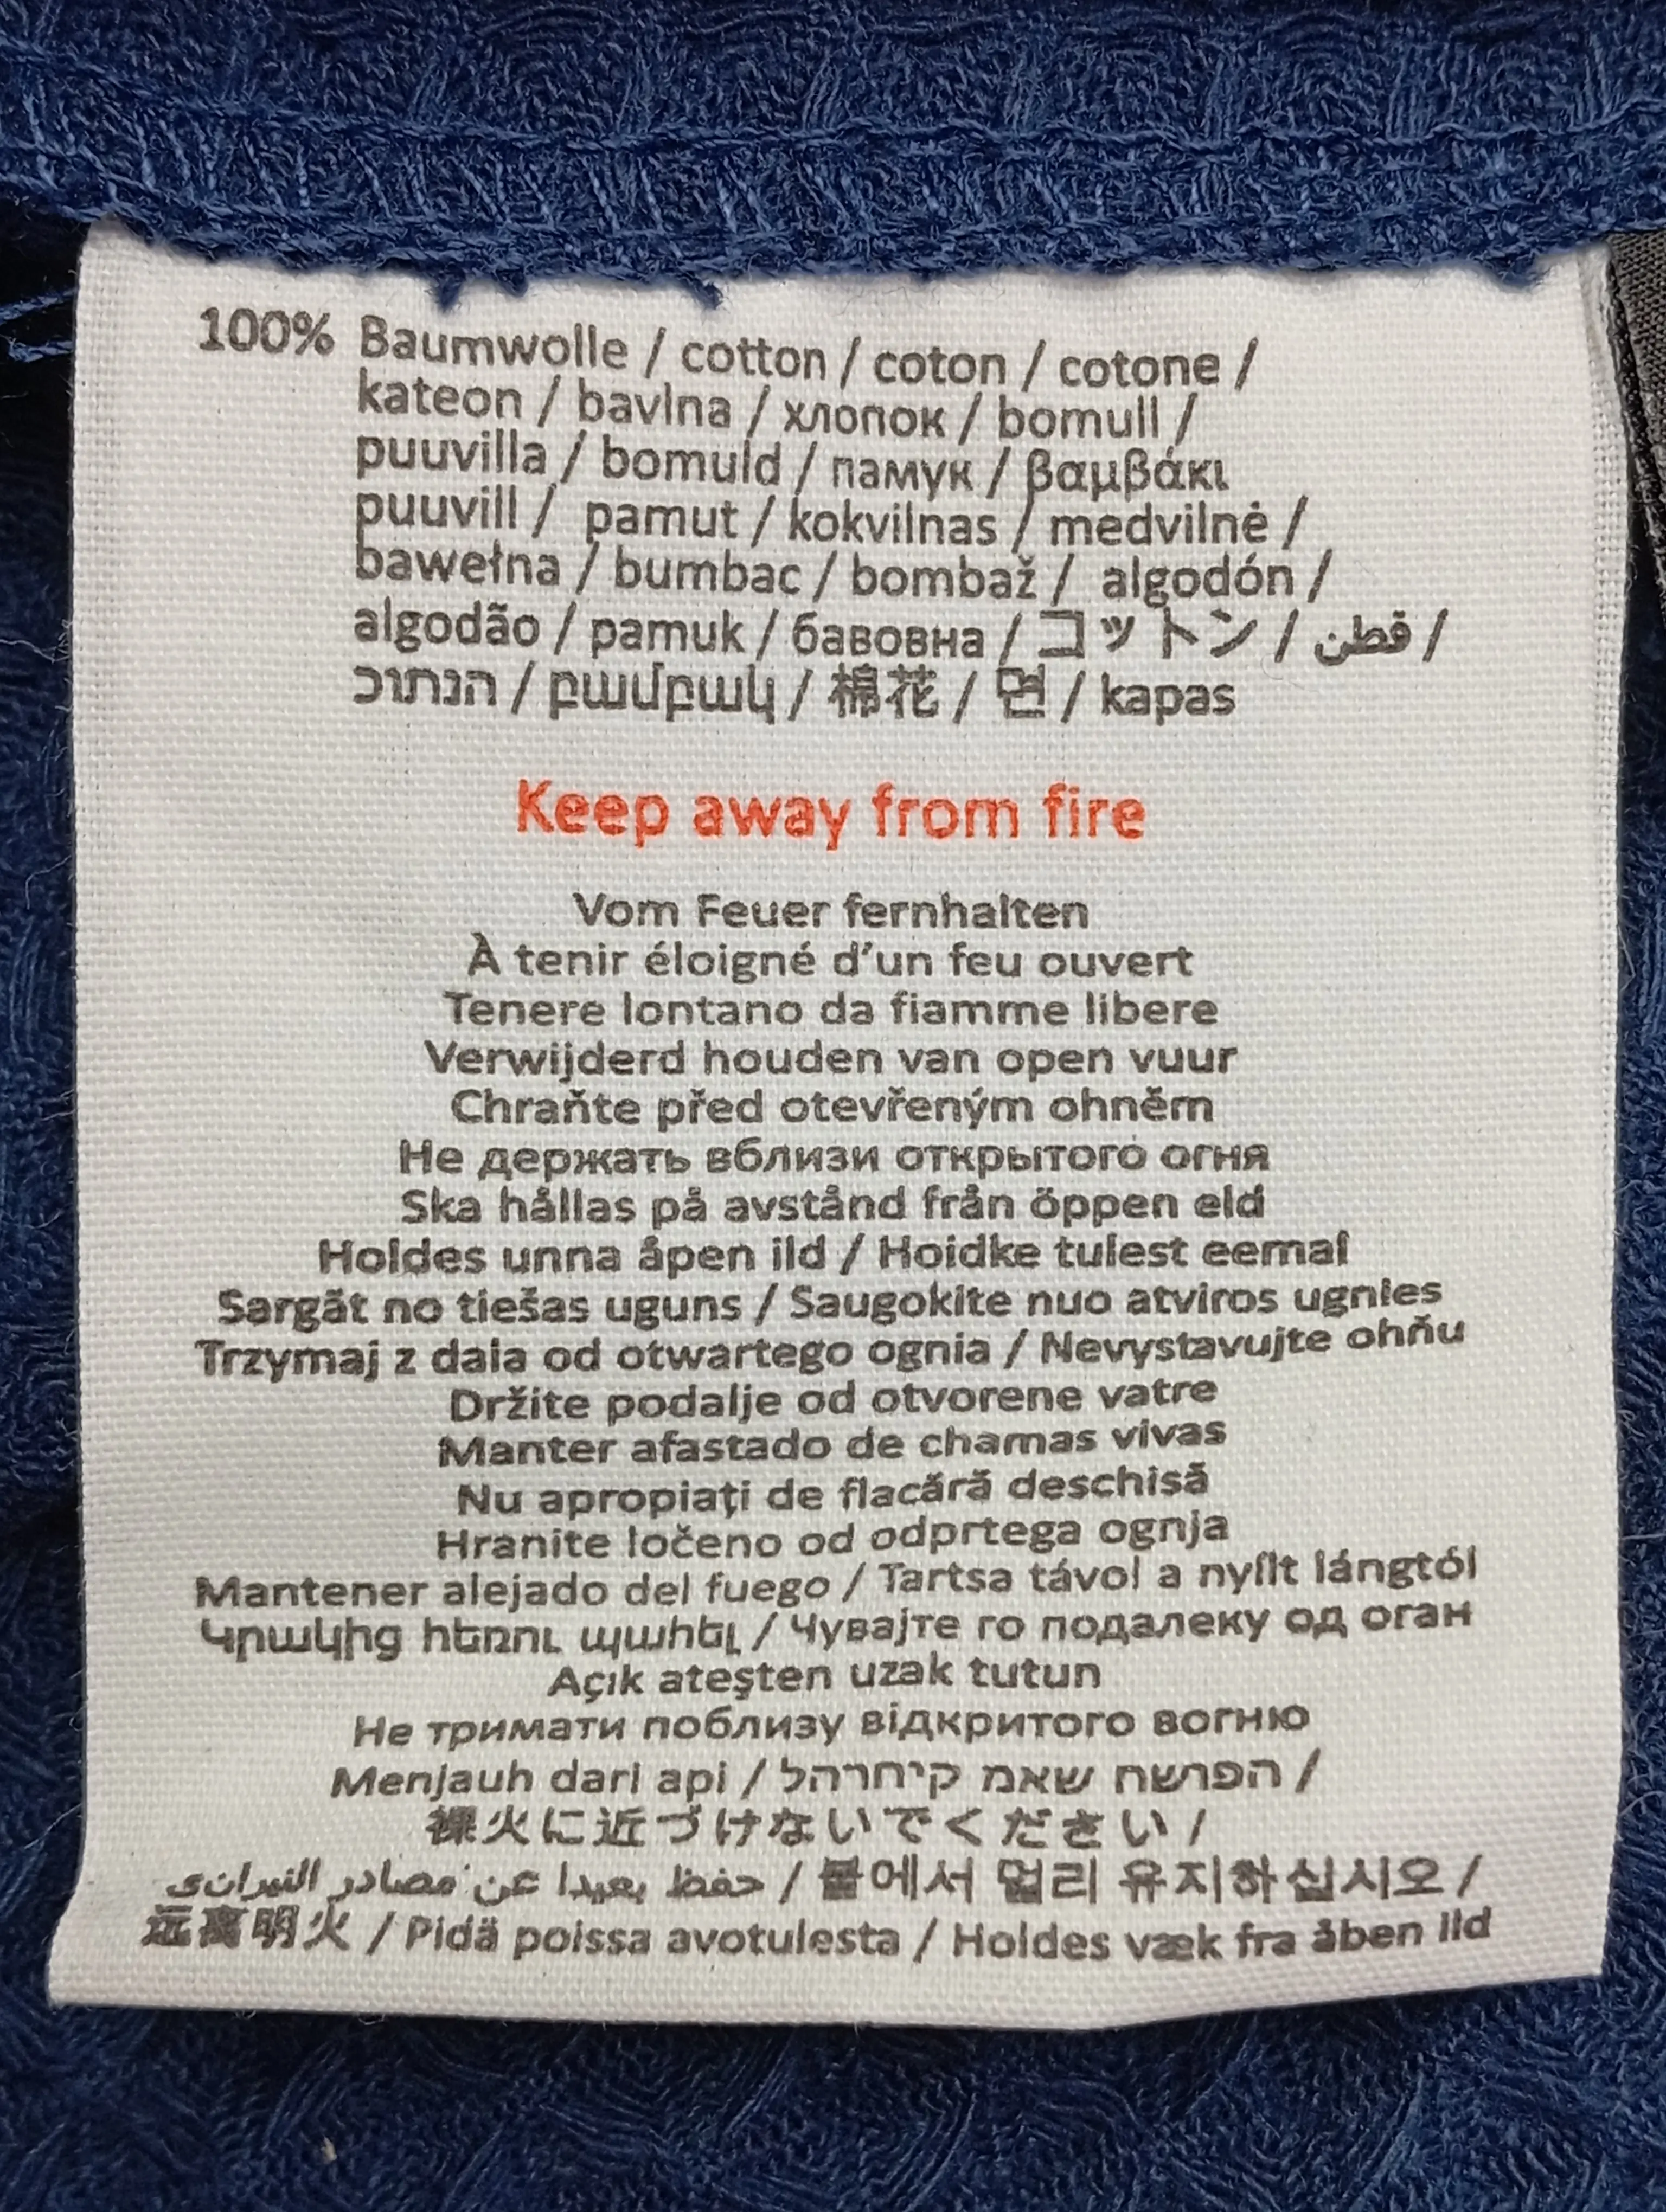 100% Baumwolle / cotton / coton / cotone /
kateon / bavlna / хлопок / bomull /
puuvilla / bomuld / памук / βαμβάκι
puuvill / pamut / kokvilnas / medvilnė /
bawełna / bumbac / bombaž / algodón /
algodão / pamuk / бавовна / コットン / قطن /
הנתוכ / բամբակ / 棉花 / 면 / kapas
Keep away from fire
Vom Feuer fernhalten
À tenir éloigné d’un feu ouvert
Tenere lontano da fiamme libere
Verwijderd houden van open vuur
Chraňte před otevřeným ohněm
Не держать вблизи открытого огня
Ska hållas på avstånd från öppen eld
Holdes unna åpen ild / Hoidke tulest eemal
Sargāt no tiešas uguns / Saugokite nuo atviros ugnies
Trzymaj z dala od otwartego ognia / Nevystavujte ohňu
Držite podalje od otvorene vatre
Manter afastado de chamas vivas
Nu apropiați de flacără deschisă
Hranite ločeno od odprtega ognja
Mantener alejado del fuego / Tartsa távol a nyílt lángtól
Կրակից հեռու պահել / Чувајте го подалеку од оган
Açık ateşten uzak tutun
Не тримати поблизу відкритого вогню
Menjauh dari api / הפרשח שאמ קיחרהל /
裸火に近づけないでください /
حفظ بعيدا عن مصادر / 불에서 멀리 유지하십시오 /
远离明火 / Pidä poissa avotulesta / Holdes væk fra åben ild